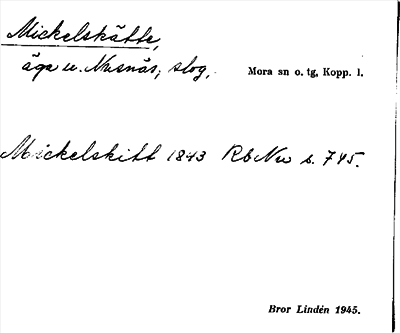 Mickelskätte,
äga u. Nusnäs, skog, Mora sn o. tg, Kopp. l.
Mickelskitt 1843 RbNu s. 745.
Bror Lindén 1945.